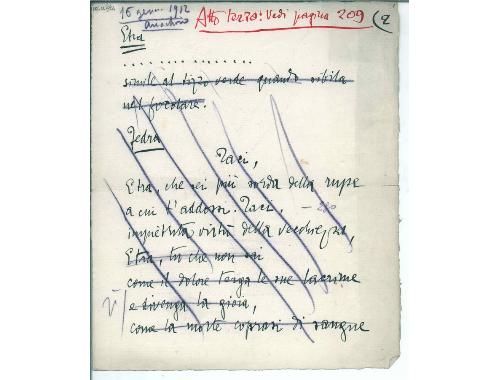 15 genn. 1912
Arcachon
Atto terzo: Vedi pagina 209 (2
Etra
. . . . . . . . . . . . . .
simile al tizzo verde quando sibila
nel focolare.
Fedra
Taci,
Etra, che sei più sorda della rupe
a cui t'addossi. Taci, — 280
impietrita virtù della vecchiezza,
Etra, tu che non sai
come il dolore terga le sue lacrime
e divenga la gioia,
come la morte coprasi di sangue